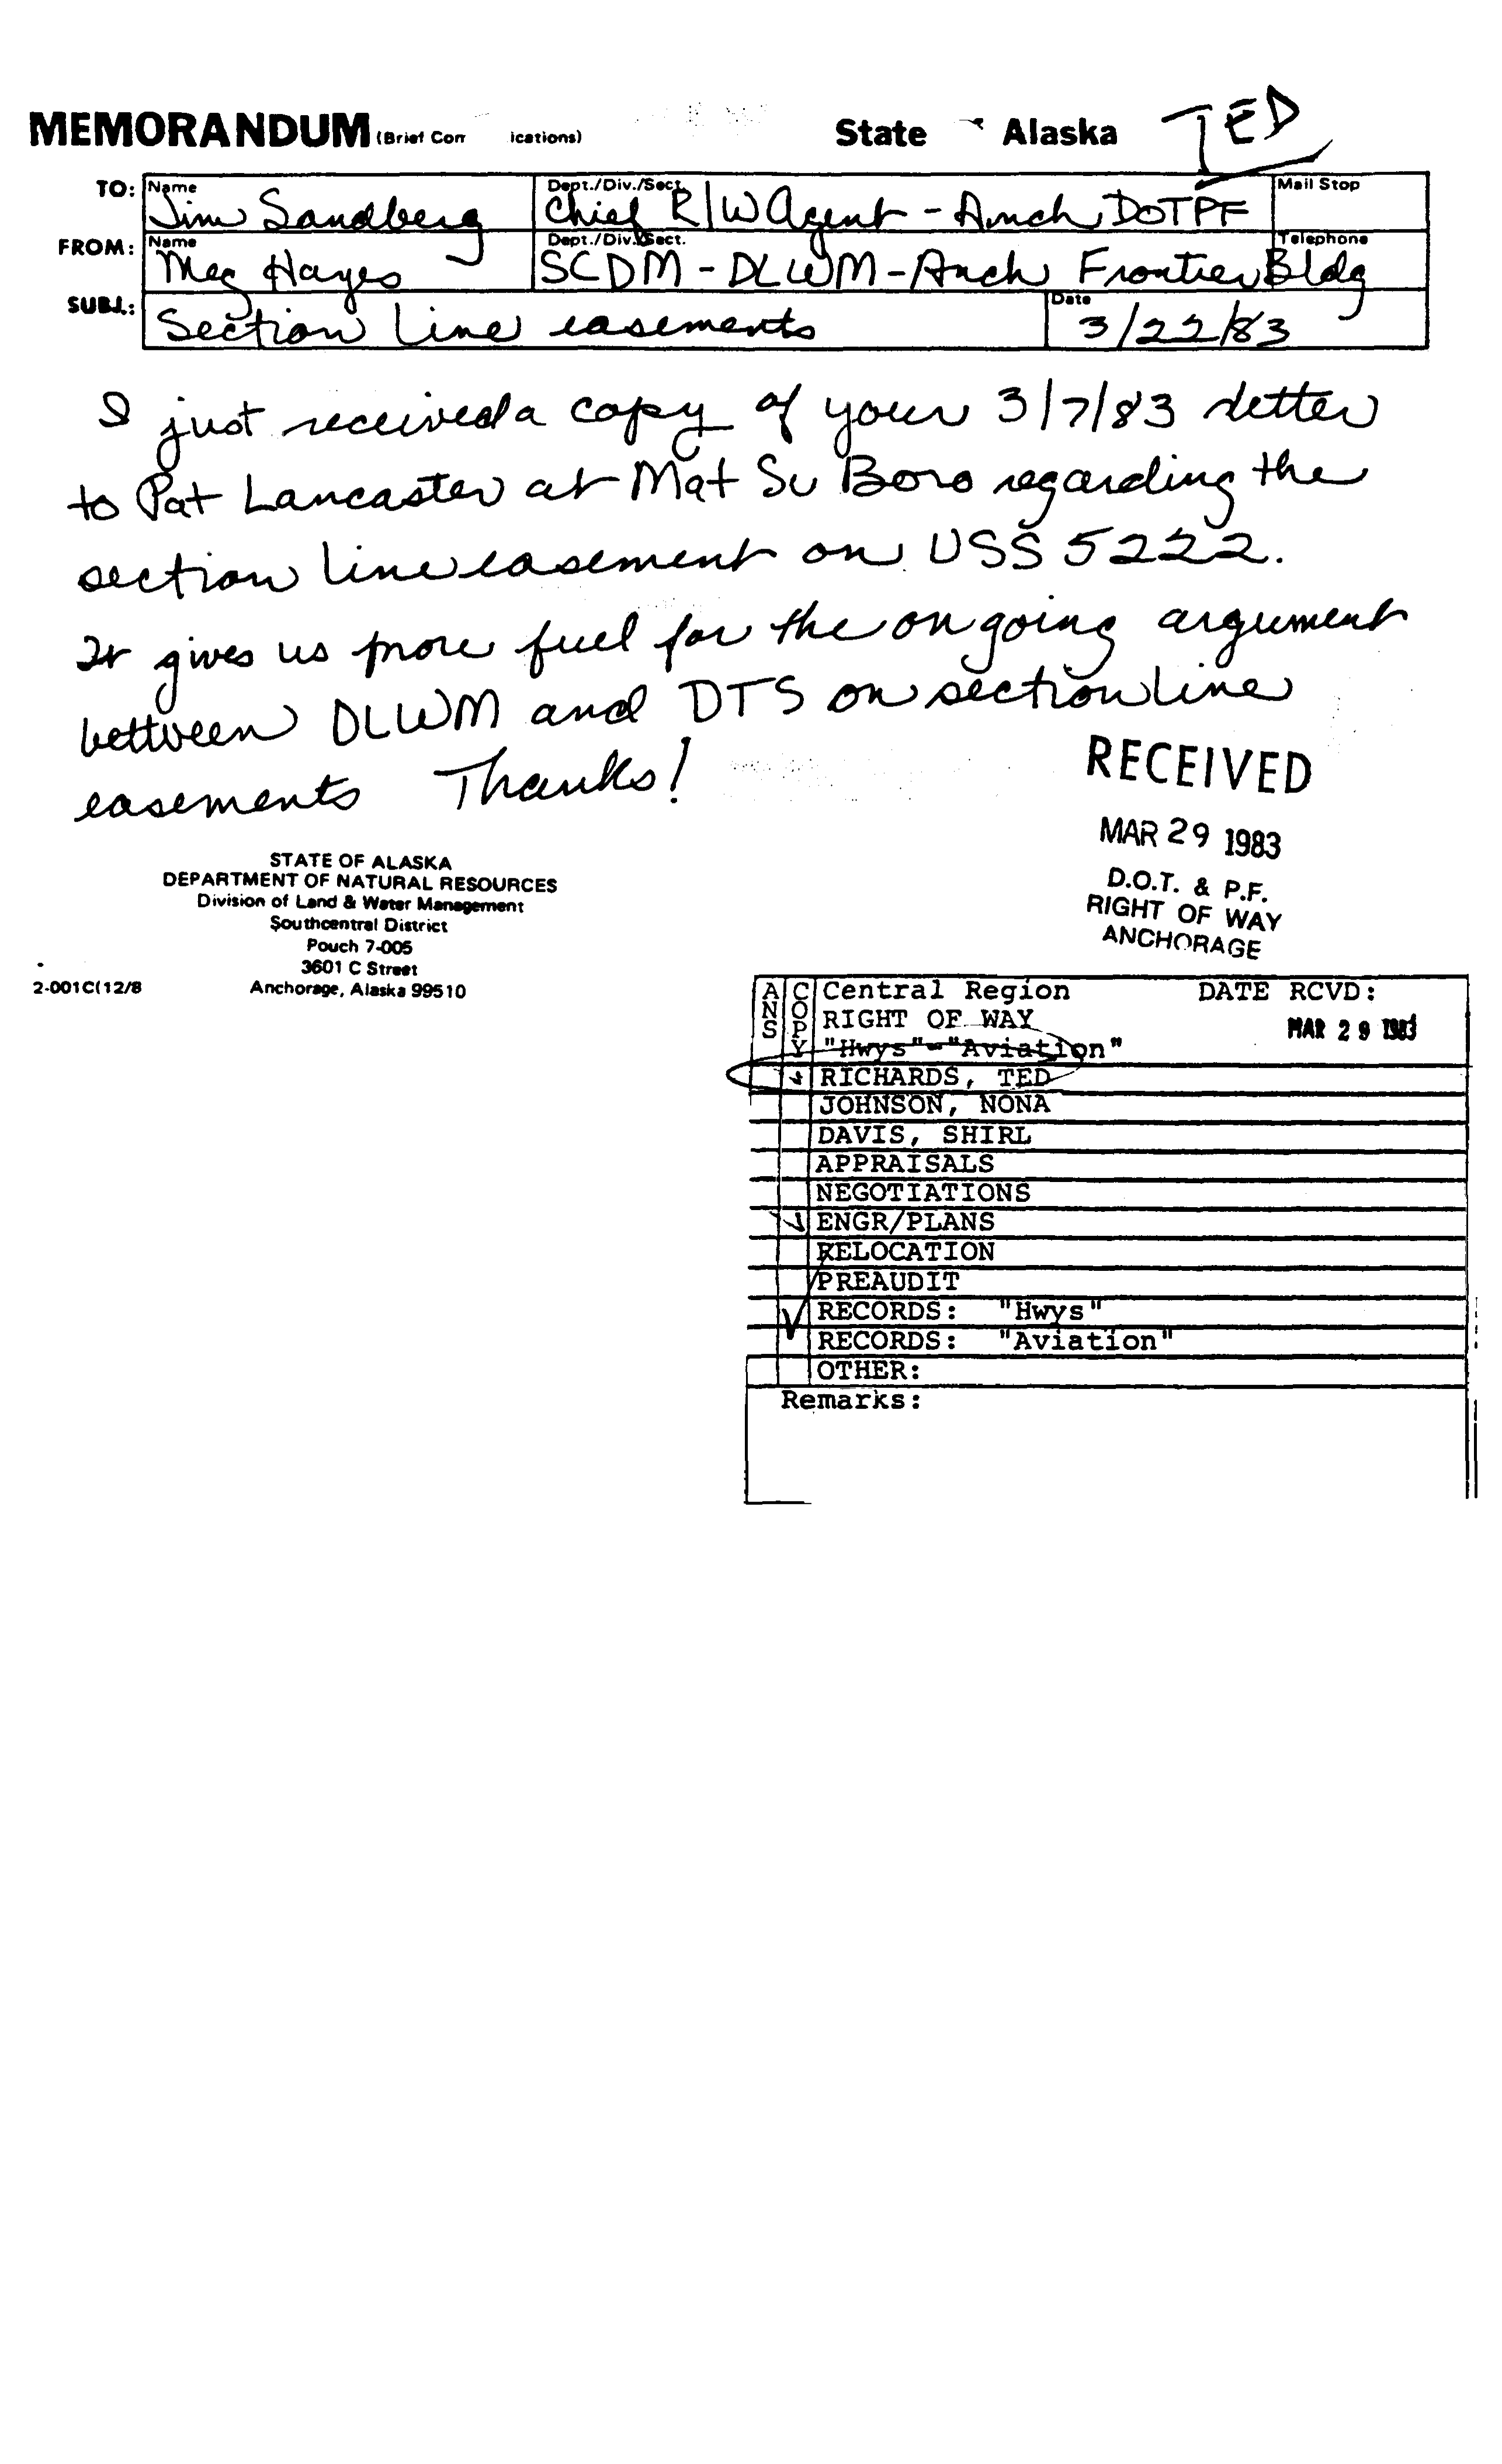 MEMORANDUM (Brief Com ications) State Alaska TED
TO: Name Jim Sandberg Dept./Div./Sect. Chief R/W Agent - Anch DOTPF Mail Stop
FROM: Name Meg Hayes Dept./Div./Sect. SCDM - DLWM - Anch Frontier Bldg Telephone
SUBJ.: Section Line easements Date 3/22/83
I just received a copy of your 3/7/83 letter
to Pat Lancaster at Mat Su Boro regarding the
section line easement on USS 5222.
It gives us more fuel for the ongoing argument
between DLWM and DTS on section line
easements Thanks!
RECEIVED
MAR 29 1983
D.O.T. & P.F.
RIGHT OF WAY
ANCHORAGE
STATE OF ALASKA
DEPARTMENT OF NATURAL RESOURCES
Division of Land & Water Management
Southcentral District
Pouch 7-005
3601 C Street
Anchorage, Alaska 99510
2-001C(12/8
ANS COPY
Central Region DATE RCVD:
RIGHT OF WAY MAR 29 1983
"Hwys" - "Aviation"
RICHARDS, TED
JOHNSON, NONA
DAVIS, SHIRL
APPRAISALS
NEGOTIATIONS
ENGR/PLANS
RELOCATION
PREAUDIT
RECORDS: "Hwys"
RECORDS: "Aviation"
OTHER:
Remarks: